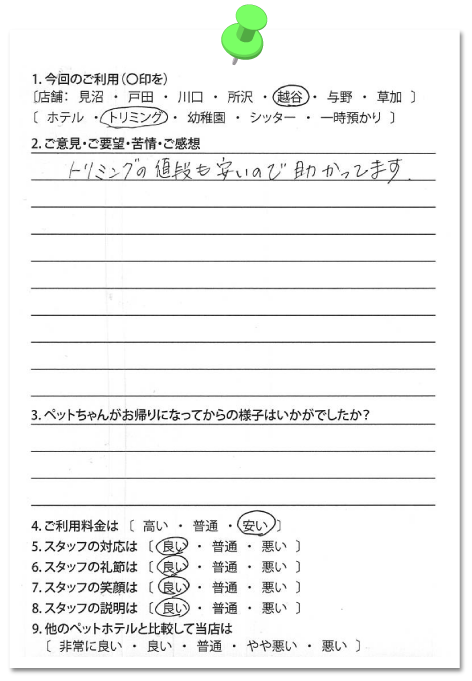 1. 今回のご利用(〇印を)
〔店舗： 見沼 ・ 戸田 ・ 川口 ・ 所沢 ・ 越谷 ・ 与野 ・ 草加 〕
〔 ホテル ・ トリミング ・ 幼稚園 ・ シッター ・ 一時預かり 〕
2. ご意見・ご要望・苦情・ご感想
トリミングの値段も安いので助かってます.
3. ペットちゃんがお帰りになってからの様子はいかがでしたか？
4. ご利用料金は 〔 高い ・ 普通 ・ 安い 〕
5. スタッフの対応は 〔 良い ・ 普通 ・ 悪い 〕
6. スタッフの礼節は 〔 良い ・ 普通 ・ 悪い 〕
7. スタッフの笑顔は 〔 良い ・ 普通 ・ 悪い 〕
8. スタッフの説明は 〔 良い ・ 普通 ・ 悪い 〕
9. 他のペットホテルと比較して当店は
〔 非常に良い ・ 良い ・ 普通 ・ やや悪い ・ 悪い 〕